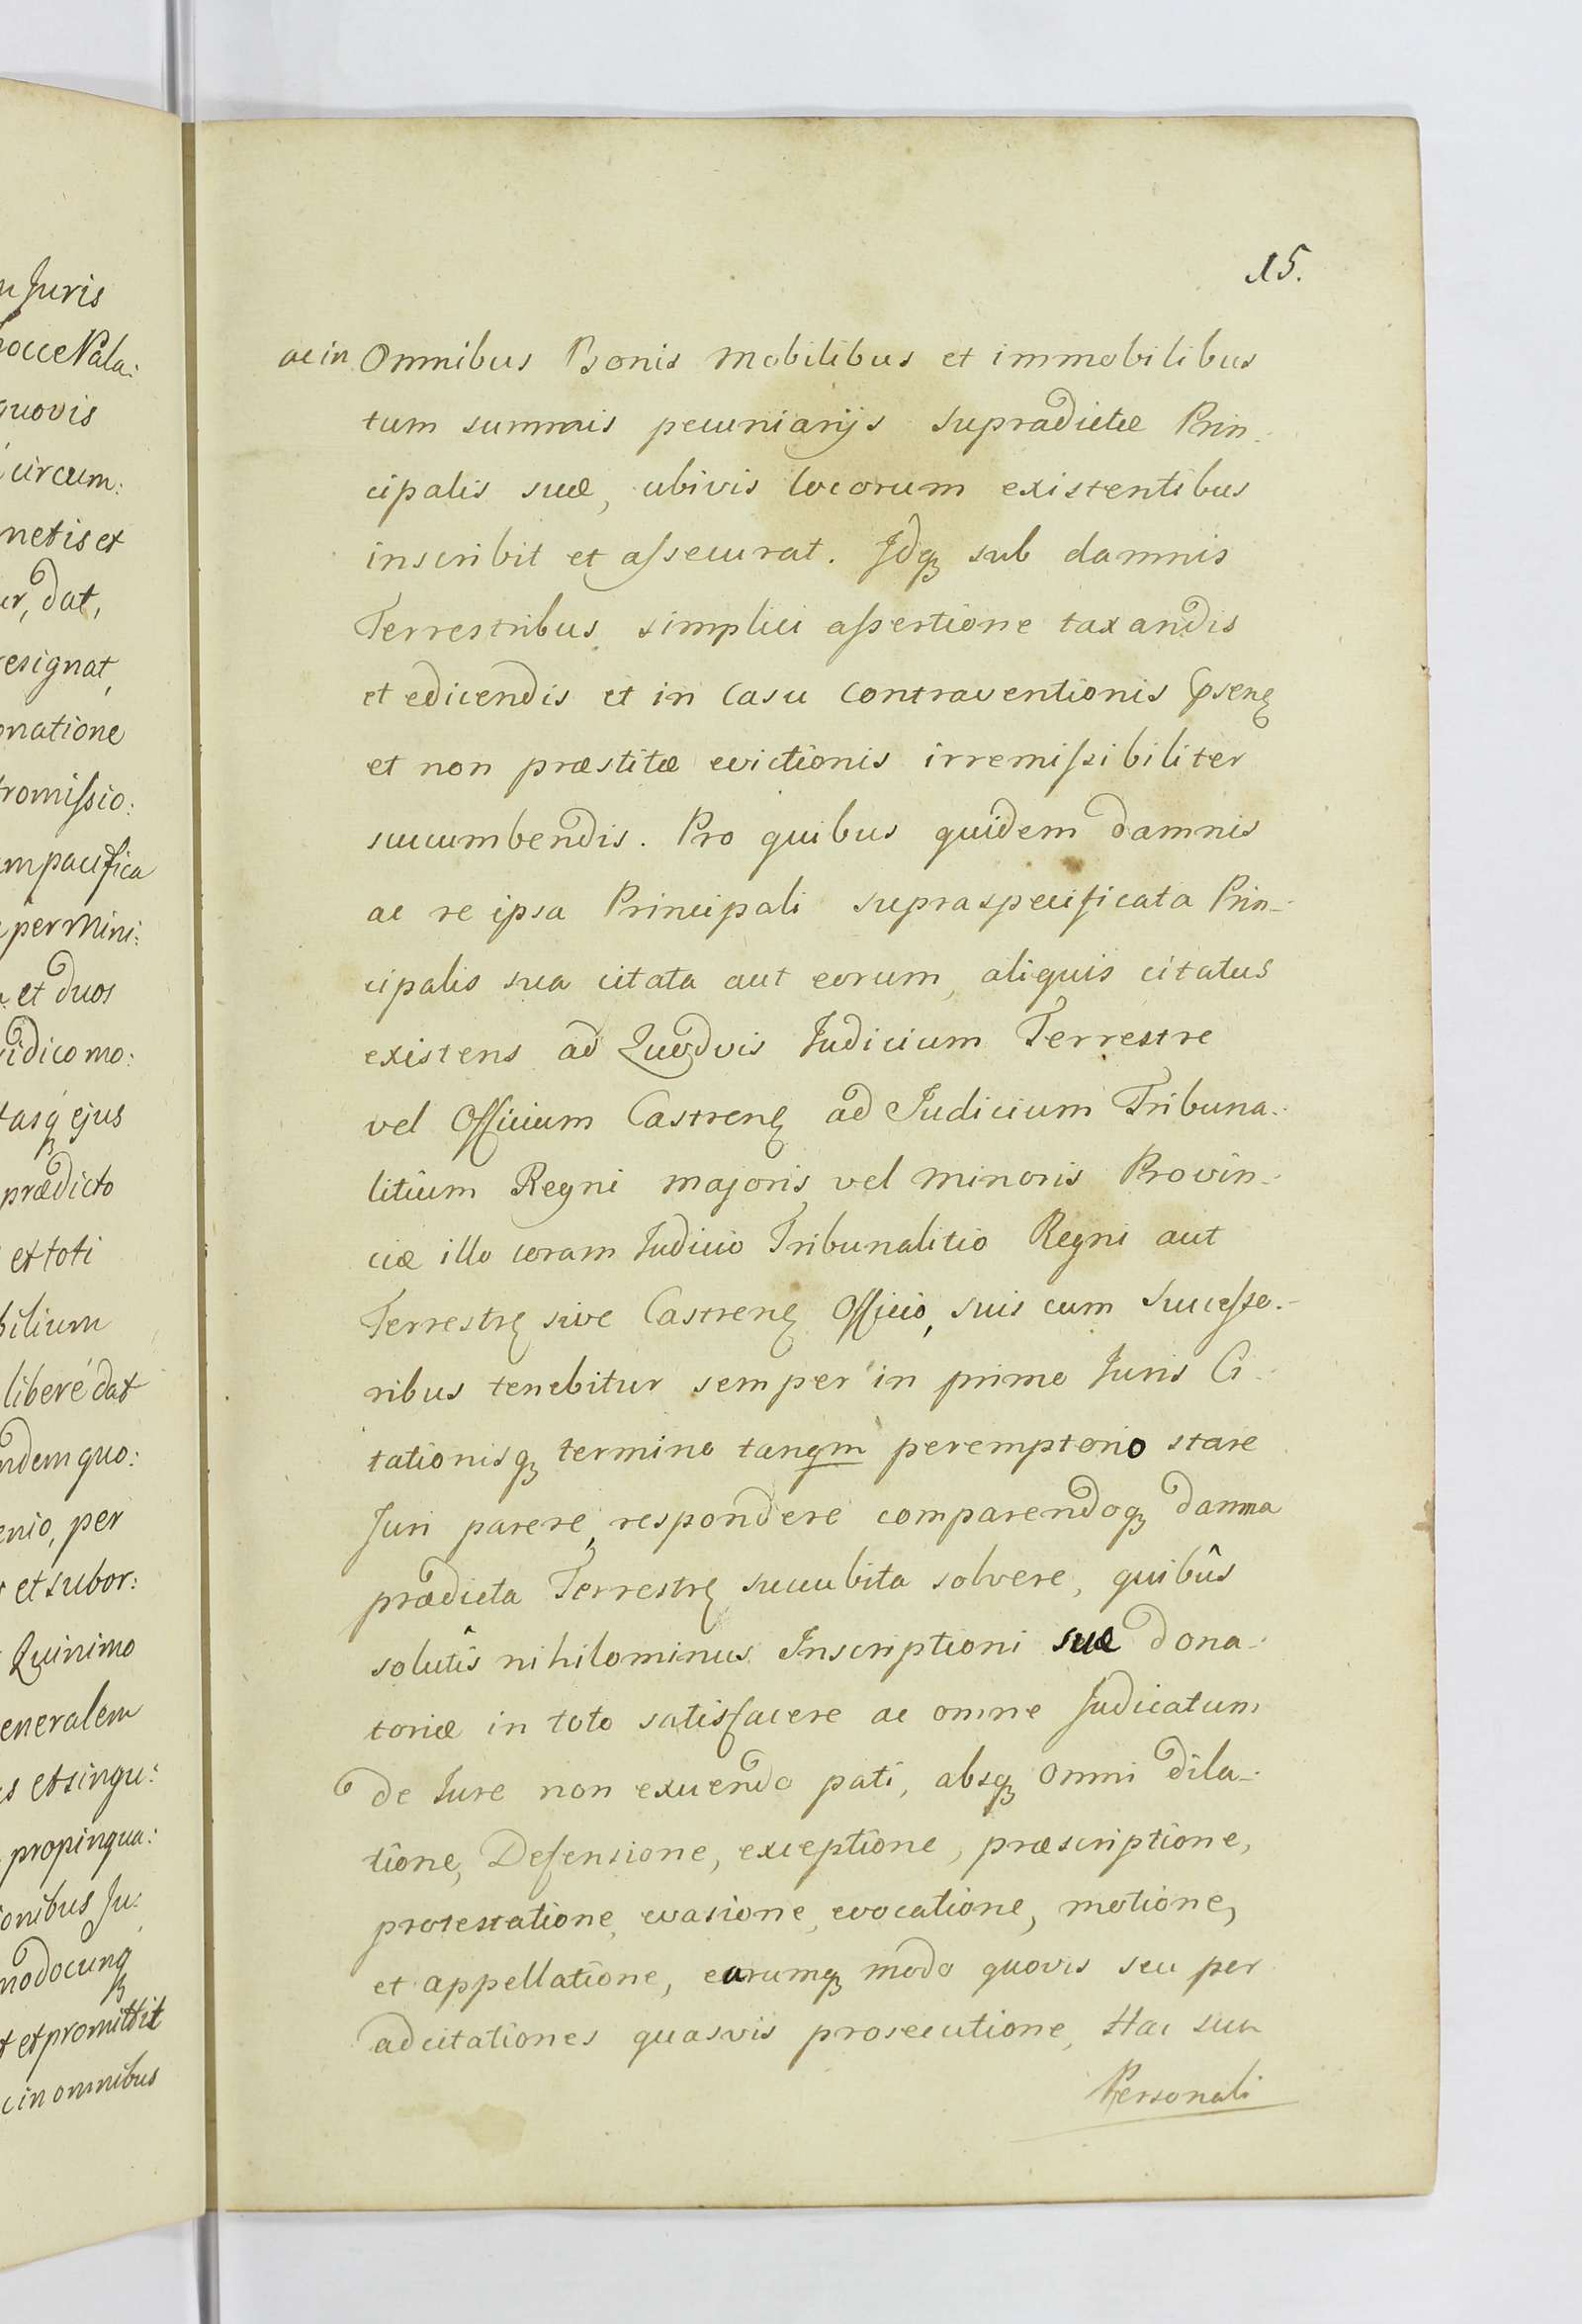 u Juris
hocce Pala:
quovis
circum:
netis et
er, dat,
resignat,
onatione
romissio:
m pacifica
per Mini:
et duos
idico mo:
tasq ejus
prædicto
et toti
bilium
liberé dat
ndem quo:
enio, per
et subor:
Quinimo
eneralem
s et singu:
propinqua:
onibus Ju:
modocunq
t et promittit
c in omnibus
15.
ac in Omnibus Bonis mobilibus et immobilibus
tum summis pecuniarijs supradictæ Prin-
cipalis suæ, ubivis locorum existentibus
inscribit et assecurat. Idq sub damnis
Terrestribus simplici assertione taxandis
et edicendis et in Casu Contraventionis
et non præstitæ evictionis irremissibiliter
succumbendis. Pro quibus quidem damnis
ac re ipsa Principali supraspecificata Prin-
cipalis sua citata aut eorum, aliquis citatus
existens ad Quodvis Judicium Terrestre
vel Officium Castren ad Judicium Tribuna-
litium Regni majoris, vel minoris Provin-
ciæ illo coram Judicio Tribunalitio Regni aut
Terrestr sive Castren Officio, suis cum Successo-
ribus tenebitur semper in primo Juris Ci-
tationisq termino tanqm peremptorio stare
Juri parere, respondere comparendoq damna
prædicta Terrestr succubita solvere, quibûs
solutîs nihilominus Inscriptioni suæ Dona-
toriæ in toto satisfacere ac omne Judicatum
de Jure non exuendo pati, absq omni dila-
tione, Defensione, exceptione, præscriptione,
protestatione, evasione, evocatione, motione,
et appellatione, earumq modo quovis seu per
adcitationes quasvis prosecutione, Hac sua
Personali